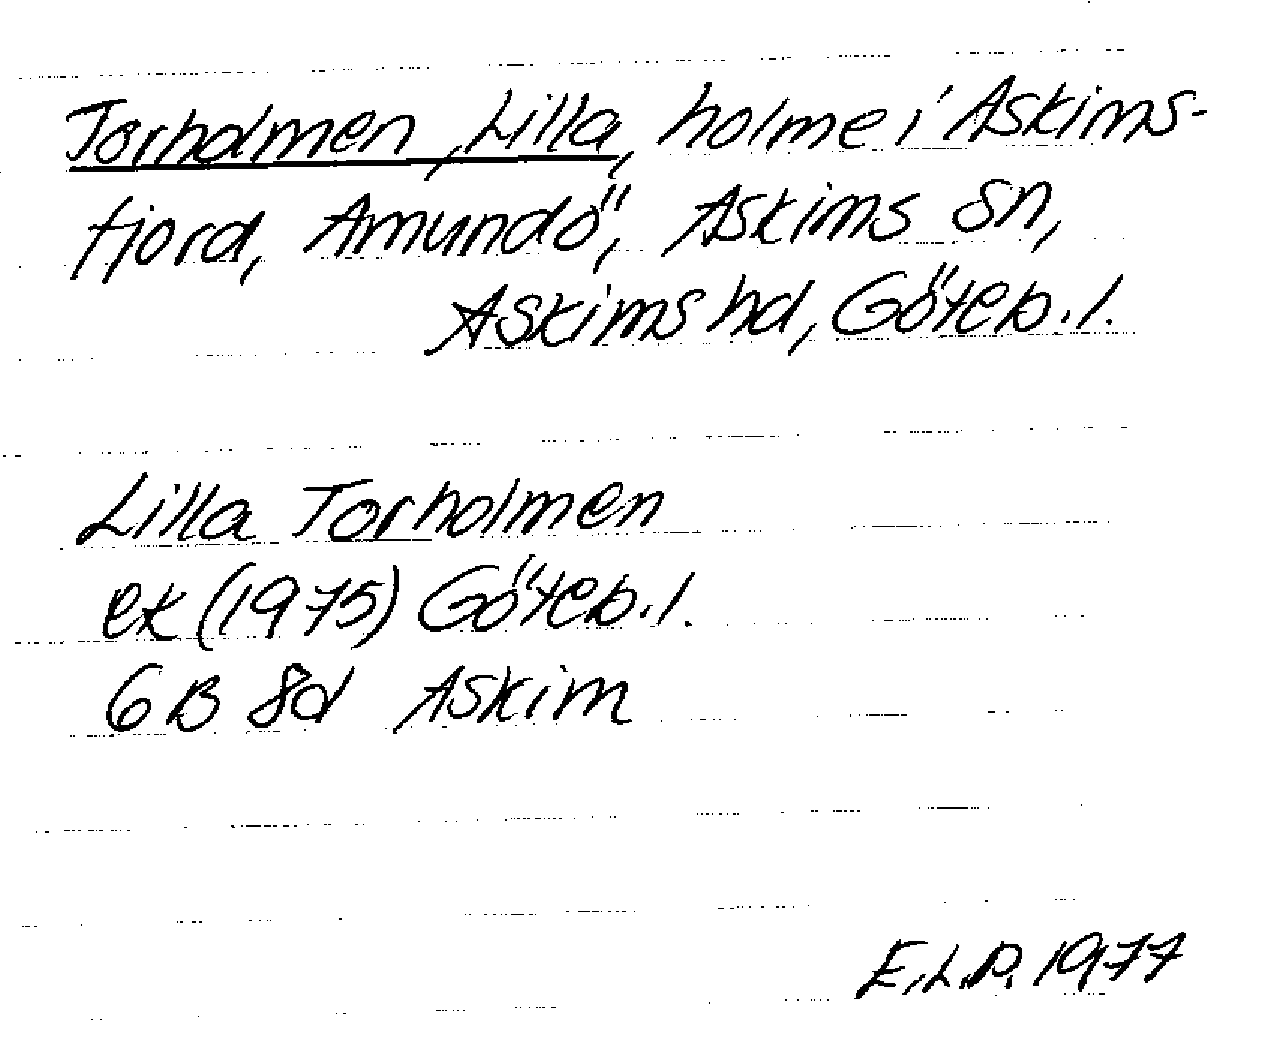 Torholmen, Lilla, holme i Askims-
fjord, Amundö, Askims sn,
Askims hd, Göteb. l.
Lilla Torholmen
ek (1975) Göteb. l.
6B 8d Askim
E.L.P. 1977